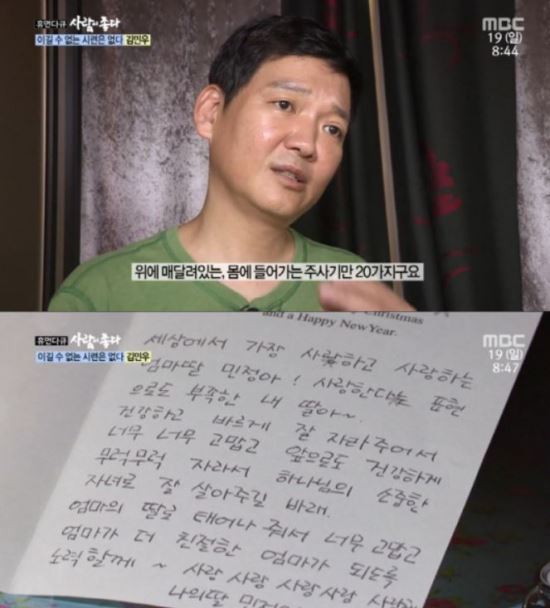 휴먼다큐 사람이 좋다
이길 수 없는 시련은 없다 김민우
MBC
19 (일)
8:44
위에 매달려있는, 몸에 들어가는 주사기만 20가지구요
Christmas
and a Happy New Year.
휴먼다큐 사람이 좋다
이길 수 없는 시련은 없다 김민우
MBC
19 (일)
8:47
세상에서 가장 사랑하고 사랑하는
엄마딸 민정아! 사랑한다는 표현
으로도 부족한 내 딸아~
건강하고 바르게 잘 자라 주어서
너무 너무 고맙고 앞으로도 건강하게
무럭무럭 자라서 하나님의 소중한
자녀로 잘 살아주길 바래.
엄마의 딸로 태어나 줘서 너무 고맙고
엄마가 더 친절한 엄마가 되도록
노력할께~ 사랑 사랑 사랑사랑
나의딸